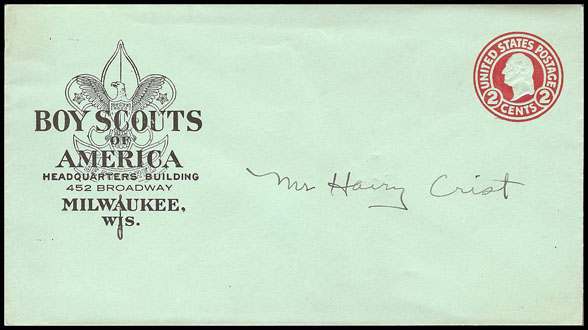 BOY SCOUTS
OF
AMERICA
HEADQUARTERS BUILDING
452 BROADWAY
MILWAUKEE,
WIS.
UNITED STATES POSTAGE
2 CENTS 2
Mr Harry Crist